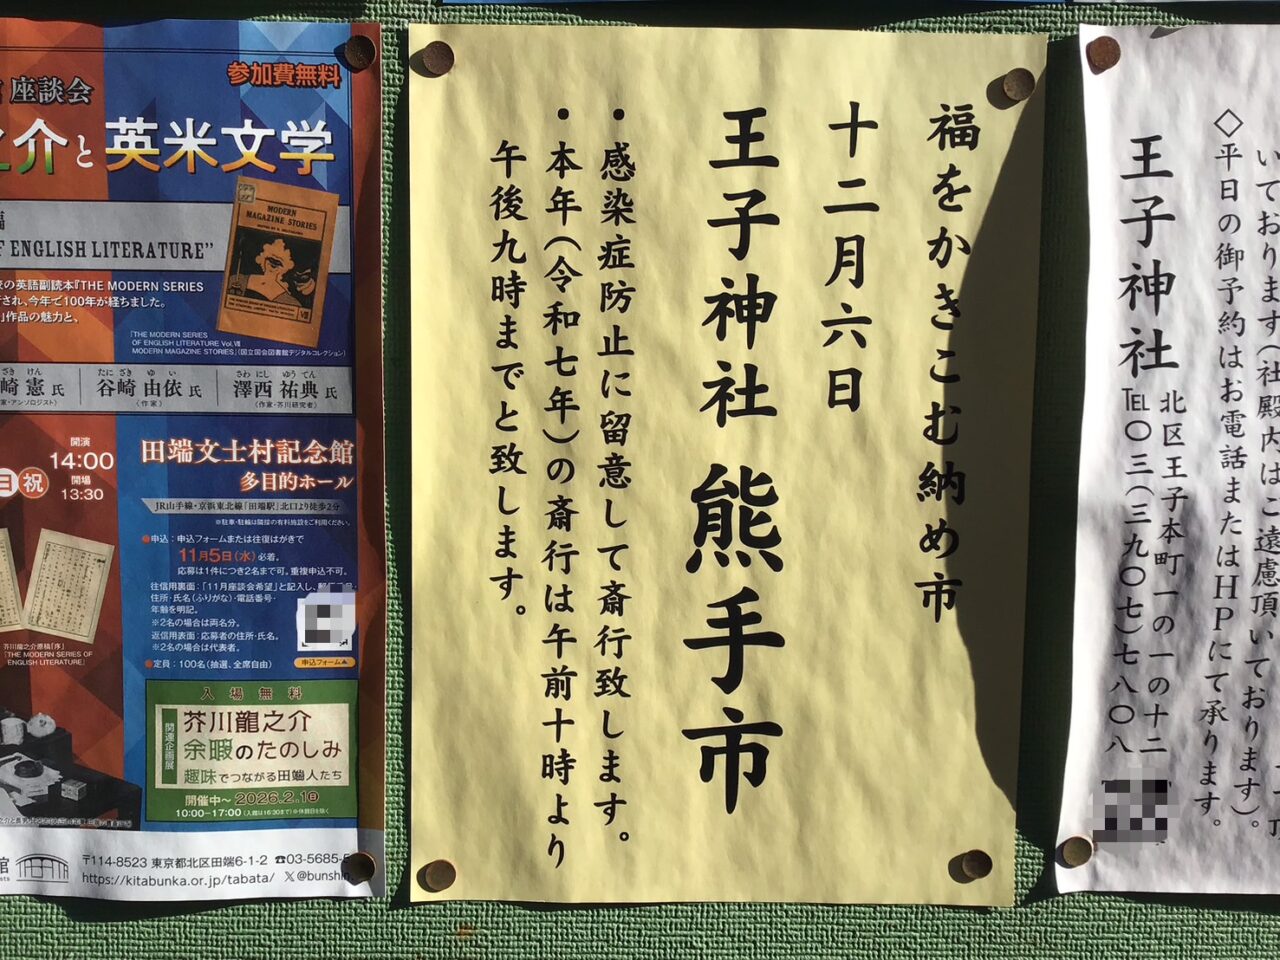 座談会
参加費無料
介と英米文学
OF ENGLISH LITERATURE”
の英語副読本『THE MODERN SERIES
され、今年で100年が経ちました。
作品の魅力と、
MODERN
MAGAZINE STORIES
『THE MODERN SERIES
OF ENGLISH LITERATURE Vol.Ⅷ
MODERN MAGAZINE STORIES』(国立国会図書館デジタルコレクション)
崎 憲 氏
谷崎 由依 氏
(作家)
澤西 祐典 氏
(作家・芥川研究者)
日 祝
開演
14:00
開場
13:30
田端文士村記念館
多目的ホール
JR山手線・京浜東北線「田端駅」北口より徒歩2分
※駐車・駐輪は隣接の有料施設をご利用ください。
●申込：申込フォームまたは往復はがきで
11月5日(水)必着。
応募は1件につき2名まで可。重複申込不可。
往信用裏面：「11月座談会希望」と記入し、郵便番号・
住所・氏名(ふりがな)・電話番号・
年齢を明記。
※2名の場合は両名分。
返信用表面：応募者の住所・氏名。
※2名の場合は代表者。
●定員：100名(抽選、全席自由)
申込フォーム▲
芥川龍之介原稿「序」
『THE MODERN SERIES OF
ENGLISH LITERATURE』
入場無料
関連企画展
芥川龍之介
余暇のたのしみ
趣味でつながる田端人たち
開催中〜2026.2.1日
10:00-17:00(入館は16:30まで)※休館日を除く
〒114-8523 東京都北区田端6-1-2 ☎03-5685-5
https://kitabunka.or.jp/tabata/ 𝕏@bunshin
福をかきこむ納め市
十二月六日
王子神社 熊手市
・感染症防止に留意して斎行致します。
・本年(令和七年)の斎行は午前十時より
午後九時までと致します。
いております(社殿内はご遠慮頂いております)。
◇平日の御予約はお電話またはHPにて承ります。
王子神社
北区王子本町一の一の十二
TEL〇三(三九〇七)七八〇八